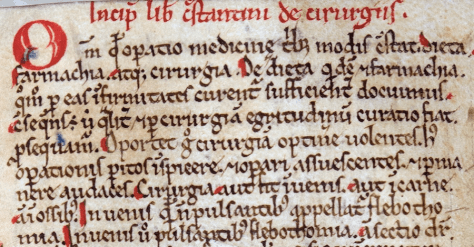 Incip̄ lib̄ c̄stantini de cirurgiis.
Om̄ q̄ opatio medicine trib; modis c̄stat. dieta.
farmachia. atq; cirurgia. De dieta qidē ⁊ farmachia.
qm̄ p eas ifirmitates curent᷑ sufficient᷑ docuimus.
p cirurgiā egritudinū curatio fiat.
psequam᷑. Oportet g̊ cirurgiā optime uolentes. h᷑
opationis pitos ispicere. ⁊ opari assuescentes. ⁊ i p̄ma
nere audaces. Cirurgia aut fit i uenis. aut i carne.
aū ossib;. In uenis q̄ n̄ pulsantib; appellat᷑ flebotho
mia. In uenis ů pulsantib; flebothomia. a sectio dr̄.